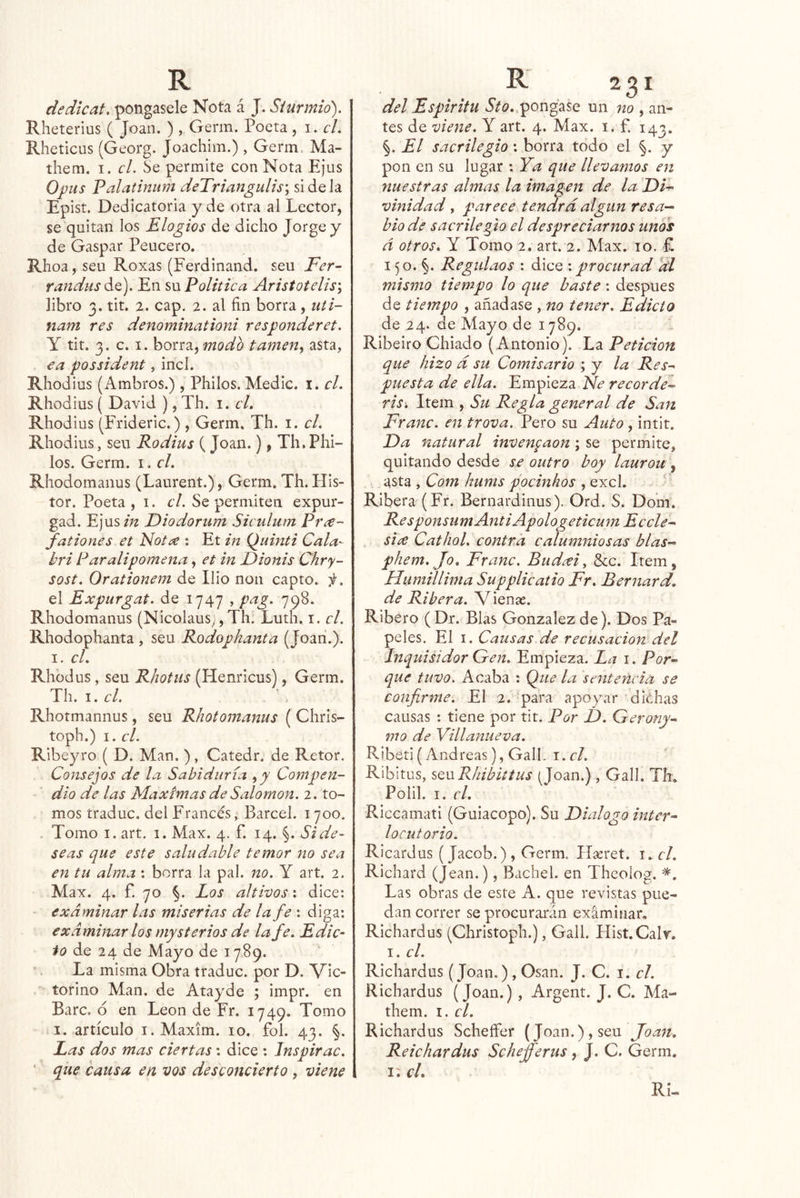 R
dedicat. pongasele Nota á J. Sturmio).
Rheterius ( Joan. ) , Germ. Poeta , 1. cl.
Rheticus (Georg. Joachim.) , Germ. Ma-
them. 1. cl. Se permite con Nota Ejus
Opus Palatinum de Triangulis; si de la
Epist. Dedicatoria y de otra al Lector,
se quitan los Elogios de dicho Jorge y
de Gaspar Peucero.
Rhoa, seu Roxas (Ferdinand. seu Fer-
randus de). En su Politica Aristotelis;
libro 3. tit. 2. cap. 2. al fin borra , uti-
nam res denominationi responderet.
Y tit. 3. c. 1. borra, modò tamen, asta,
ea possident , incl.
Rhodius (Ambros.) , Philos. Medic. 1. cl.
Rhodius ( David ) , Th. 1. cl.
Rhodius (Frideric.) , Germ. Th. 1. cl.
Rhodius, seu Rodius ( Joan. ) , Th. Phi-
los. Germ. 1. cl.
Rhodomanus (Laurent.), Germ. Th. His-
tor. Poeta , 1. cl. Se permiten expur-
gad. Ejus in Diodorum Siculum Præ-
fationes et Notæ : Et in Quinti Cala-
bri Paralipomena , et in Dionis Chry-
sost. Orationem de Ilio non capto. ℣.
el Expurgat. de 1747 , pag. 798.
Rhodomanus (Nicolaus) , Th. Luth. 1. cl.
Rhodophanta , seu Rodophanta (Joan.).
1. cl.
Rhodus , seu Rhotus (Henricus) , Germ.
Th. 1. cl.
Rhotmannus , seu Rhotomanus ( Chris-
toph.) 1. cl.
Ribeyro ( D. Man. ) , Catedr. de Retor.
Consejos de la Sabiduría , y Compen-
dio de las Maxîmas de Salomon. 2. to-
mos traduc. del Francés, Barcel. 1700.
Tomo 1. art. 1. Max. 4. f. 14. §. Si de-
seas que este saludable temor no sea
en tu alma : borra la pal. no. Y art. 2.
Max. 4. f. 70 §. Los altivos : dice:
exáminar las miserias de la fe : diga:
exáminar los mysterios de la fe. Edic-
to de 24 de Mayo de 1789.
La misma Obra traduc. por D. Vic-
torino Man. de Atayde ; impr. en
Barc. ó en Leon de Fr. 1749. Tomo
1. artículo 1. Maxîm. 10. fol. 43. §.
Las dos mas ciertas : dice : Inspirac.
que causa en vos desconcierto , viene
R 231
del Espiritu Sto. pongase un no , an-
tes de viene. Y art. 4. Max. 1. f. 143.
§. El sacrilegio : borra todo el §. y
pon en su lugar : Ya que llevamos en
nuestras almas la imagen de la Di-
vinidad , parece tendrá algun resa-
bio de sacrilegio el despreciarnos unos
á otros. Y Tomo 2. art. 2. Max. 10. f.
150. §. Regulaos : dice : procurad al
mismo tiempo lo que baste : despues
de tiempo , añadase , no tener. Edicto
de 24. de Mayo de 1789.
Ribeiro Chiado ( Antonio ). La Peticion
que hizo á su Comisario ; y la Res-
puesta de ella. Empieza Ne recorde-
ris. Item , Su Regla general de San
Franc. en trova. Pero su Auto , intit.
Da natural invençaon ; se permite,
quitando desde se outro boy laurou ,
asta , Com hums pocinhos , excl.
Ribera ( Fr. Bernardinus ). Ord. S. Dom.
Responsum Anti Apologeticum Eccle-
siæ Cathol. contra calumniosas blas-
phem. Jo. Franc. Budæi, &c. Item ,
Humillima Supplicatio Fr. Bernard.
de Ribera. Vienæ.
Ribero ( Dr. Blas Gonzalez de ). Dos Pa-
peles. El 1. Causas de recusacion del
Inquisidor Gen. Empieza. La 1. Por-
que tuvo. Acaba : Que la sentencia se
confirme. El 2. para apoyar dichas
causas : tiene por tit. Por D. Gerony-
mo de Villanueva.
Ribeti ( Andreas ), Gall. 1. cl.
Ribitus, seu Rhibittus (Joan.) , Gall. Th.
Polil. 1. cl.
Riccamati (Guiacopo). Su Dialogo inter-
locutorio.
Ricardus ( Jacob. ) , Germ. Hæret. 1. cl.
Richard (Jean.) , Bachel. en Theolog. *.
Las obras de este A. que revistas pue-
dan correr se procurarán exâminar.
Richardus (Christoph.) , Gall. Hist. Calv.
1. cl.
Richardus ( Joan. ) , Osan. J. C. 1. cl.
Richardus (Joan.) , Argent. J. C. Ma-
them. 1. cl.
Richardus Scheffer ( Joan. ) , seu Joan.
Reichardus Schefferus , J. C. Germ.
1. cl.
Ri-